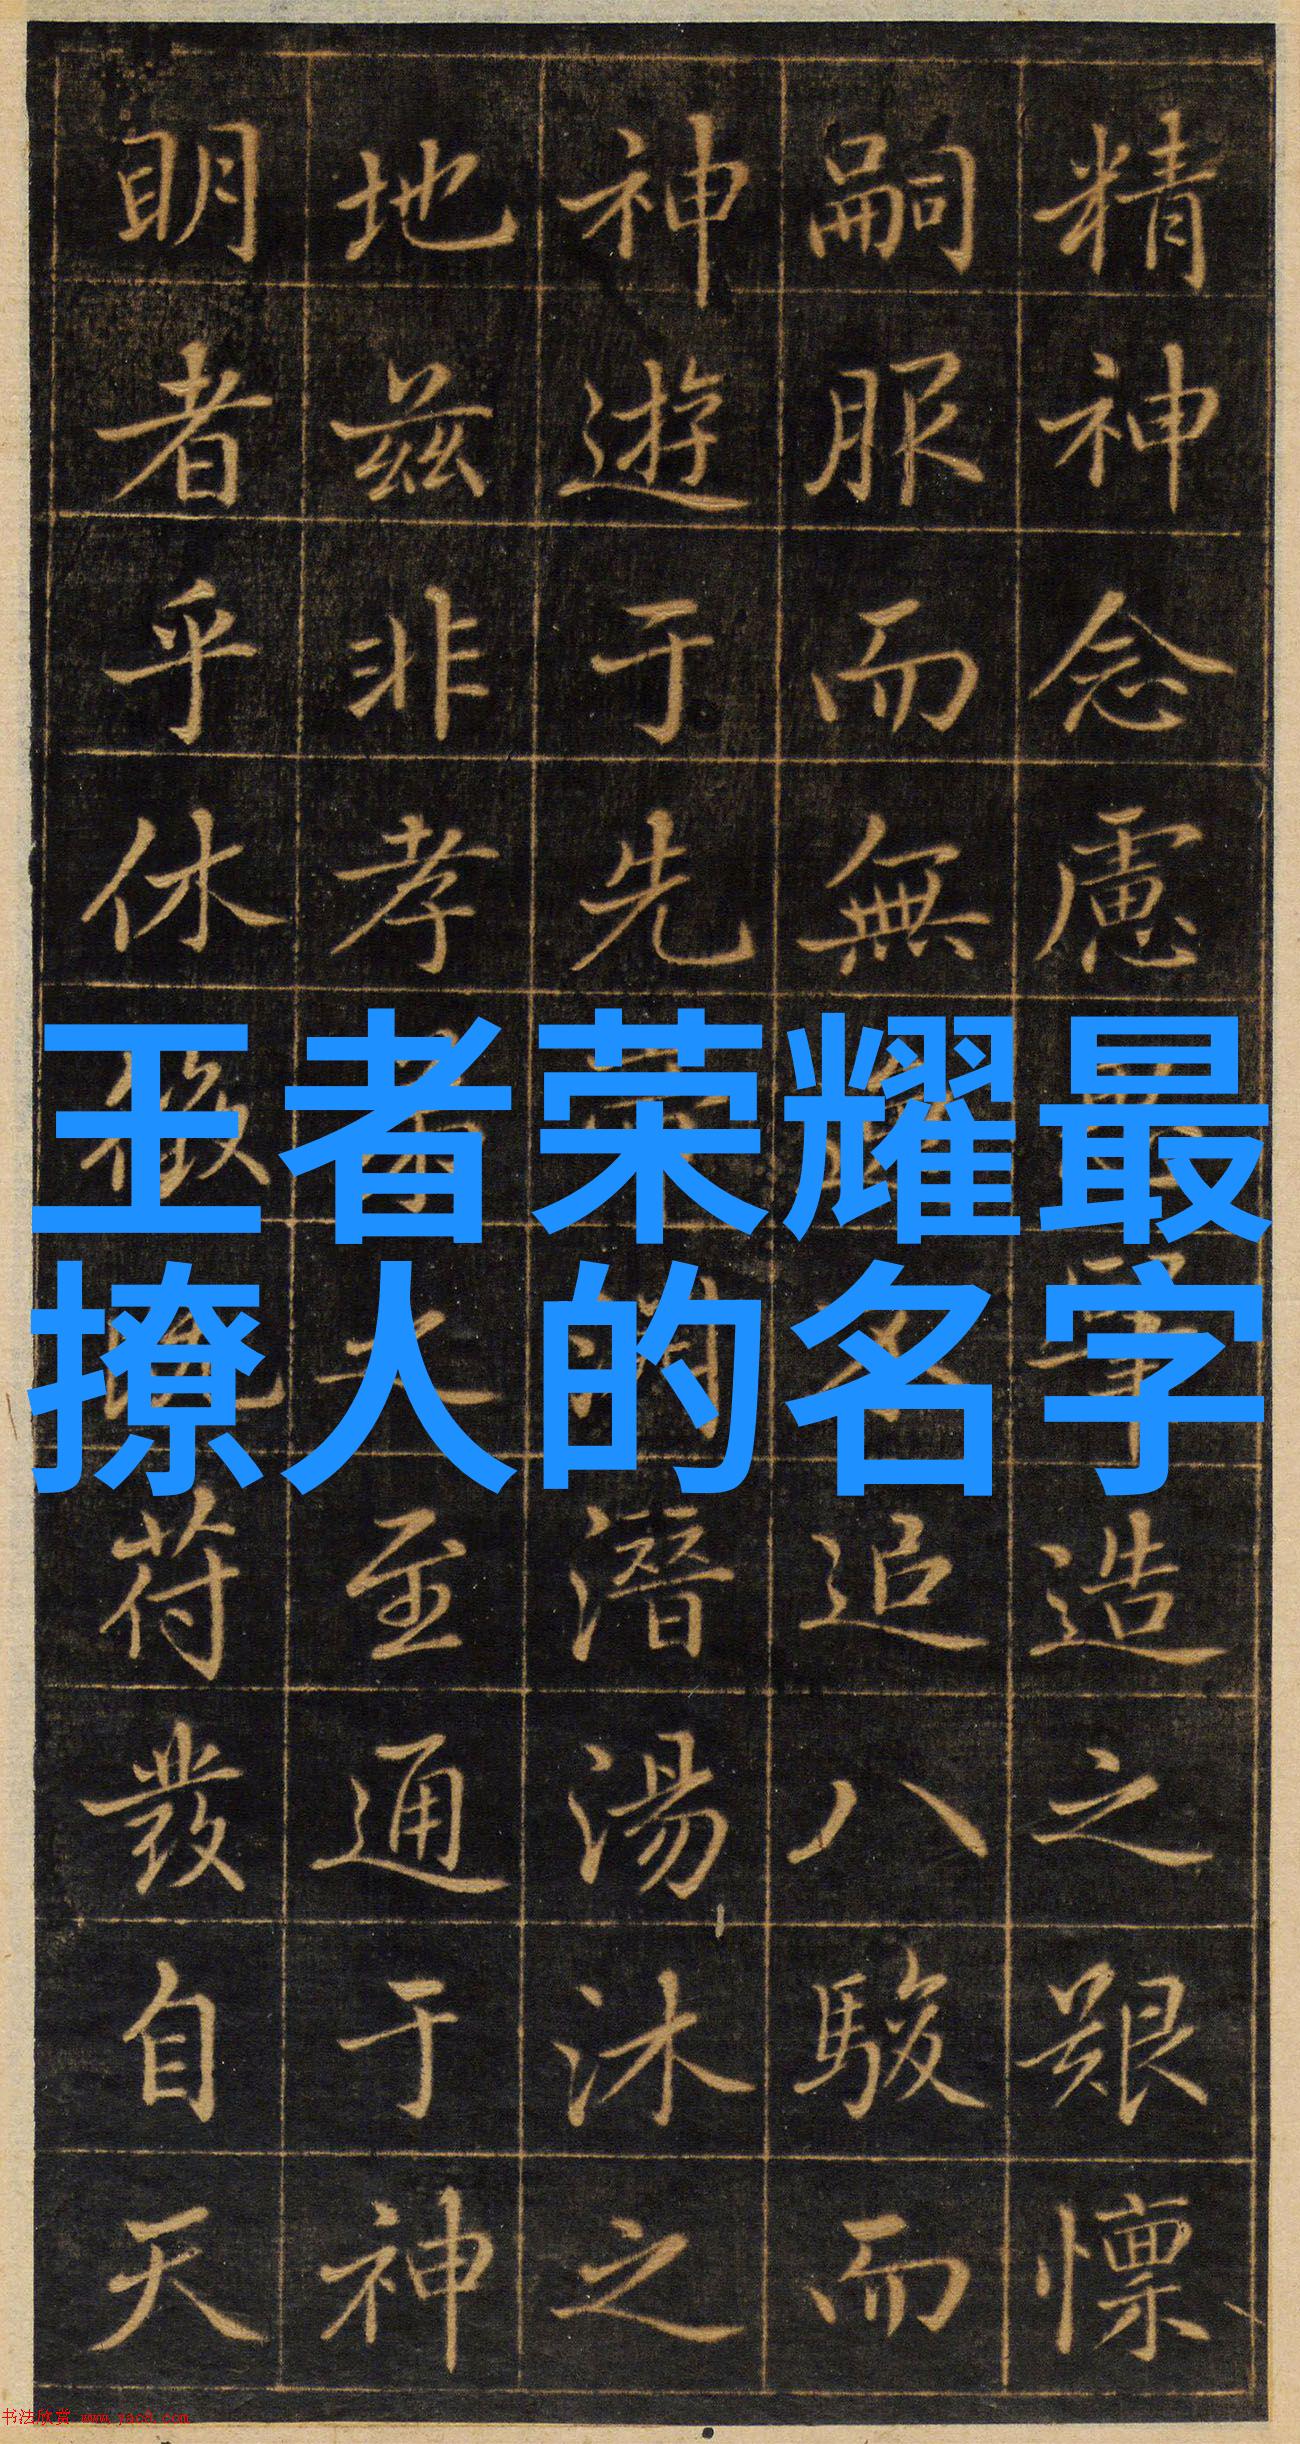 精神念慮造之艱懍
嗣服而無追八駿而
神遊于先潛湯沐之
地茲非孝之至通于神
明者乎休徵符發自天
王者荣耀最
撩人的名字
书法欣赏 www.yac8.com